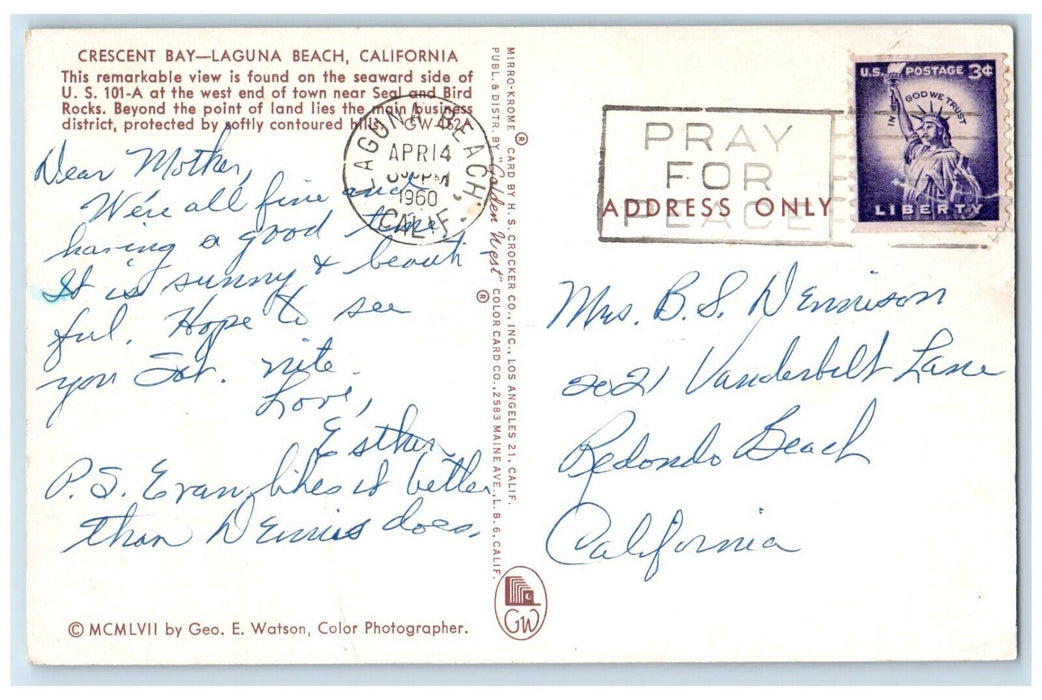 CRESCENT BAY—LAGUNA BEACH, CALIFORNIA
This remarkable view is found on the seaward side of
U. S. 101-A at the west end of town near Seal and Bird
Rocks. Beyond the point of land lies the main business
district, protected by softly contoured hills. GW-452
Dear Mother,
We're all fine and
having a good time.
It is sunny & beauti
ful. Hope to see
you Sat. nite.
Love,
Esther
P.S. Evan likes it better
than Dennis does.
© MCMLVII by Geo. E. Watson, Color Photographer.
LAGUNA BEACH,
APR 14
PM
1960
CALIF.
MIRRO-KROME ® CARD BY H. S. CROCKER CO., INC., LOS ANGELES 21, CALIF.
PUBL. & DISTR. BY "Golden West" ® COLOR CARD CO., 2583 MAINE AVE., L. B. 6, CALIF.
GW
PRAY
FOR
PEACE
ADDRESS ONLY
U.S. POSTAGE 3¢
IN GOD WE TRUST
LIBERTY
Mrs. B. S. Dennison
2021 Vanderbilt Lane
Redondo Beach
California